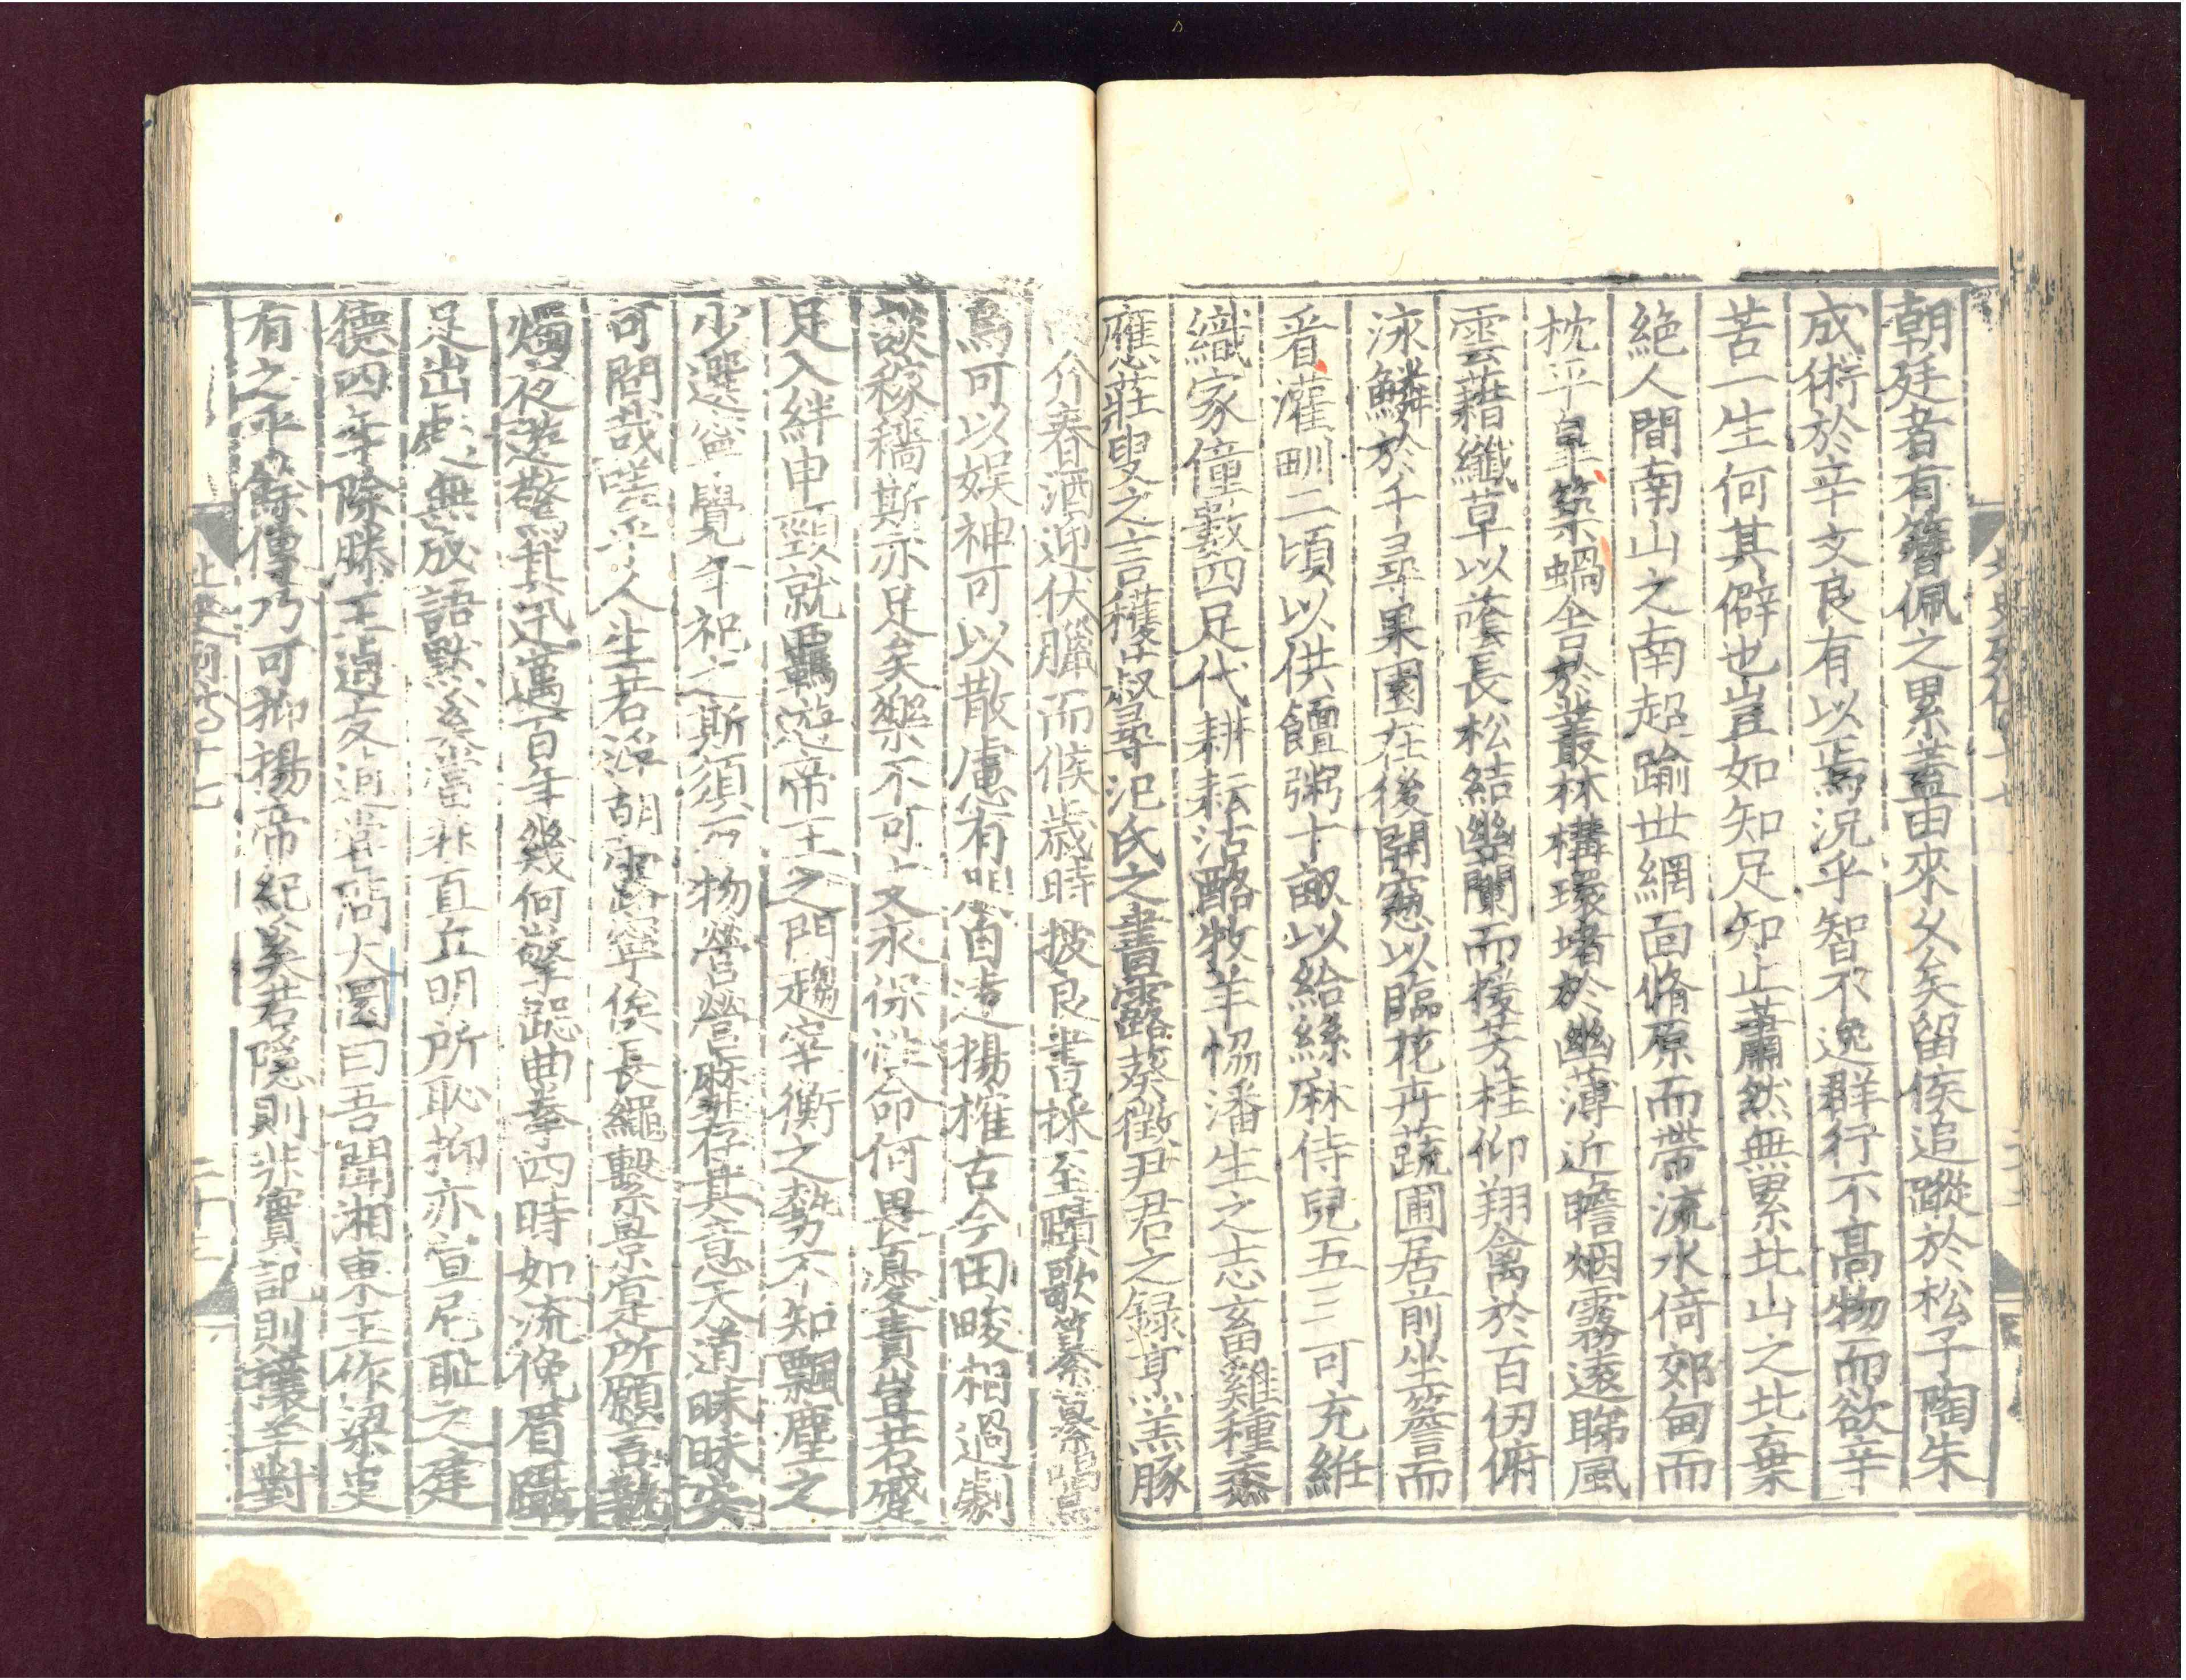 朝廷者有簪佩之累蓋由來久矣留侯追蹤於松子陶朱
成術於辛文良有以焉況乎智不逸群行不高物而欲辛
苦一生何其僻也豈如知足知止蕭然無累北山之北棄
絶人間南山之南超踰世網面脩原而帶流水倚郊甸而
枕平皐築蝸舍於叢林構環堵於幽薄近瞻烟霧遠睇風
雲藉纖草以蔭長松結幽蘭而援芳桂仰翔禽於百仞俯
泳鱗於千尋果園在後開窓以臨花卉蔬圃居前坐簷而
看灌甽二頃以供饘粥十畝以給絲麻侍兒五三可充絍
織家僮數四足代耕耘沽酪牧羊恊潘生之志畜雞種黍
應莊叟之言穫菽尋氾氏之書露葵徵尹君之録烹羔豚
介春酒迎伏臘而候歳時披良書採至賾歌纂纂唱烏
烏可以娯神可以散慮有朋自遠揚搉古今田畯相過劇
談稼穡斯亦足矣樂不可支永保性命何畏憂責豈若蹙
足入絆申頸就羈遊帝王之門趨宰衡之勢不知飄塵之
少選寧覺年祀之斯須万物營營靡存其意天道昧昧安
可問哉嗟乎人生若浮朝露寧俟長繩繫景寔所願言執
燭夜遊驚其迅邁百年幾何擎跽曲拳四時如流俛眉躡
足出處無成語黙奚當非直丘明所恥抑亦宣尼恥之建
德四年除滕王逌友逌嘗問大圜曰吾聞湘東王作梁史
有之乎餘傳乃可抑揚帝紀奚若隠則非實記則攘羊對
北史列傳十七
二十三